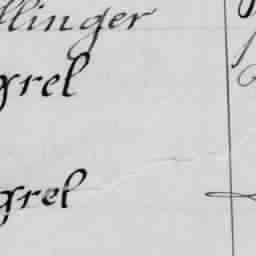 llinger
grel
grel